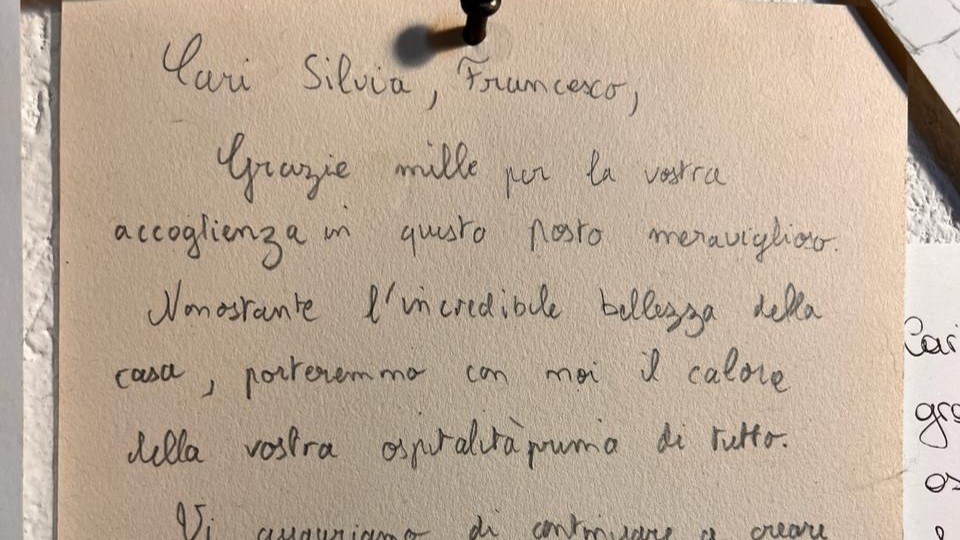 Cari Silvia, Francesco,
Grazie mille per la vostra
accoglienza in questo posto meraviglioso.
Nonostante l'incredibile bellezza della
casa, porteremmo con noi il calore
della vostra ospitalità prima di tutto.
Vi auguriamo di continuare a creare
Cari